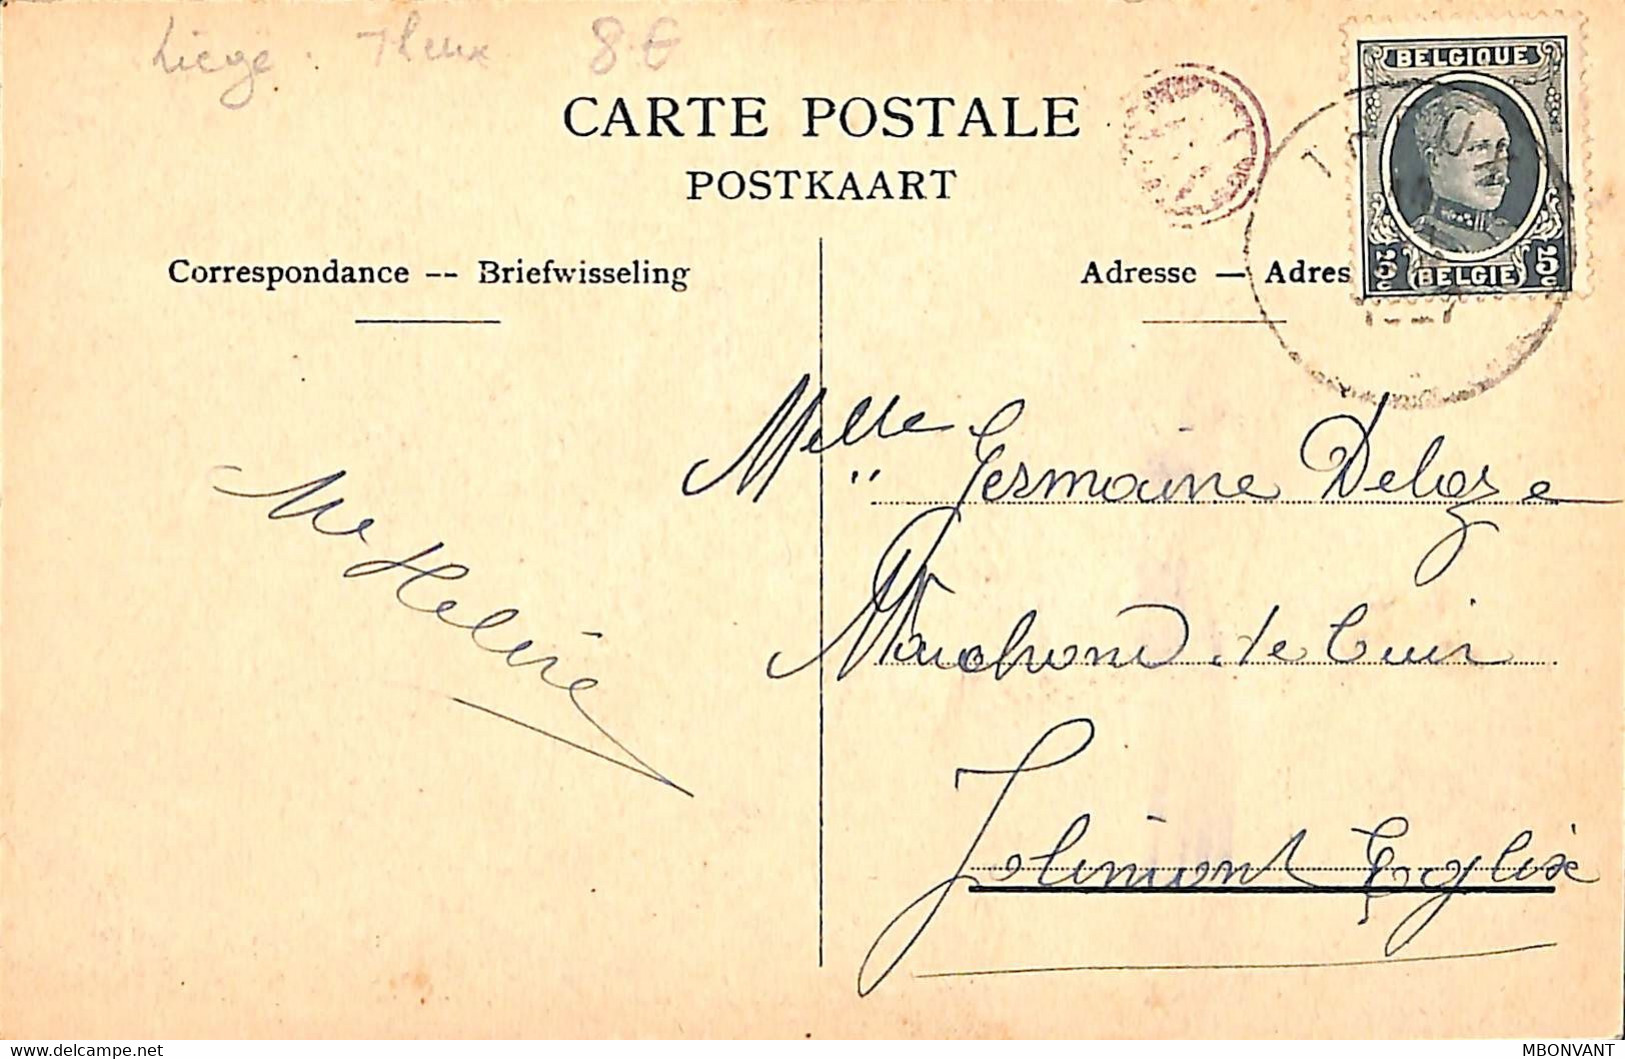 Liège. Theux 8€
CARTE POSTALE
POSTKAART
Correspondance -- Briefwisseling
Adresse — Adres
BELGIQUE
5c BELGIE 5c
Melle Germaine Deloge
Marchand de Cuir
Jolimont Eglise
Me Hélène
MBONVANT